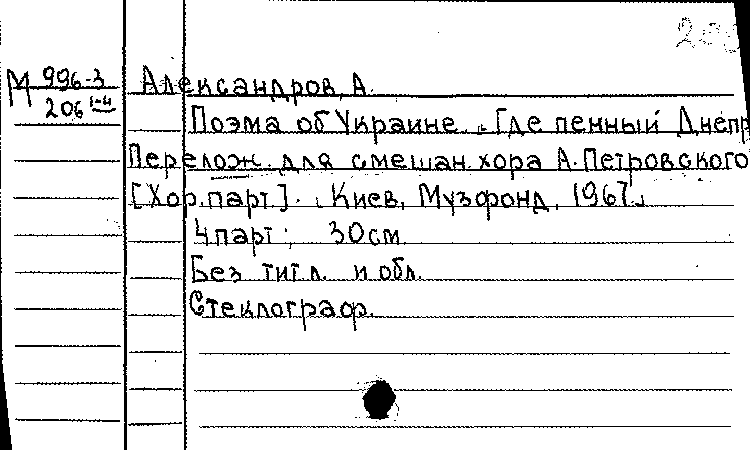 М 996-3
206 1-4
Александров, А.
Поэма об Украине. „Где пенный Днепр
Перелож. для смешан. хора А. Петровского
[Хор. парт.]. [Киев, Музфонд, 1967]
4 парт; 30 см.
Без тит. л. и обл.
Стеклограф.